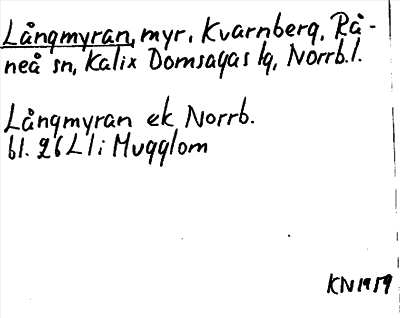 Långmyran, myr, Kvarnberg, Rå-
neå sn, Kalix Domsagas lg, Norrb.l.
Långmyran ek Norrb.
bl. 26 L l i Mugglom
KN 1959